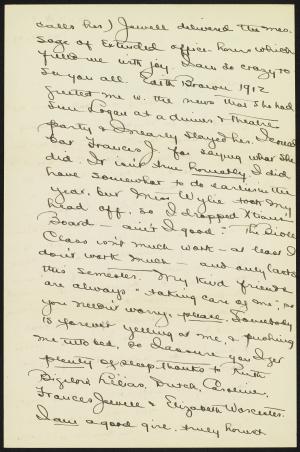 calls her) Jewell delivered the mes-
sage of extended office-hours which
filled me with joy. I am so crazy to
see you all. Edith Brown 1912
greeted me w. the news that she had
seen Logan at a dinner & theatre
party & I nearly slayed her. I could
bar Frances J. for saying what she
did. It isn't true honestly I did
have somewhat to do earlier in the
year, but Miss Wylie took my
head off, so I dropped Xtian
Board - ain't I good - The Bible
Class isn't much work - at least I
don't work much - and only lasts
this semester. My kind friends
are always "taking care of me", so
you needn't worry, please. Somebody
is forever yelling at me, & pushing
me into bed, so I assure you I get
plenty of sleep, thanks to Ruth
Bigelow, Lilias, Dutch, Caroline,
Frances Jewell & Elizabeth Worcester.
I am a good girl, truly honest